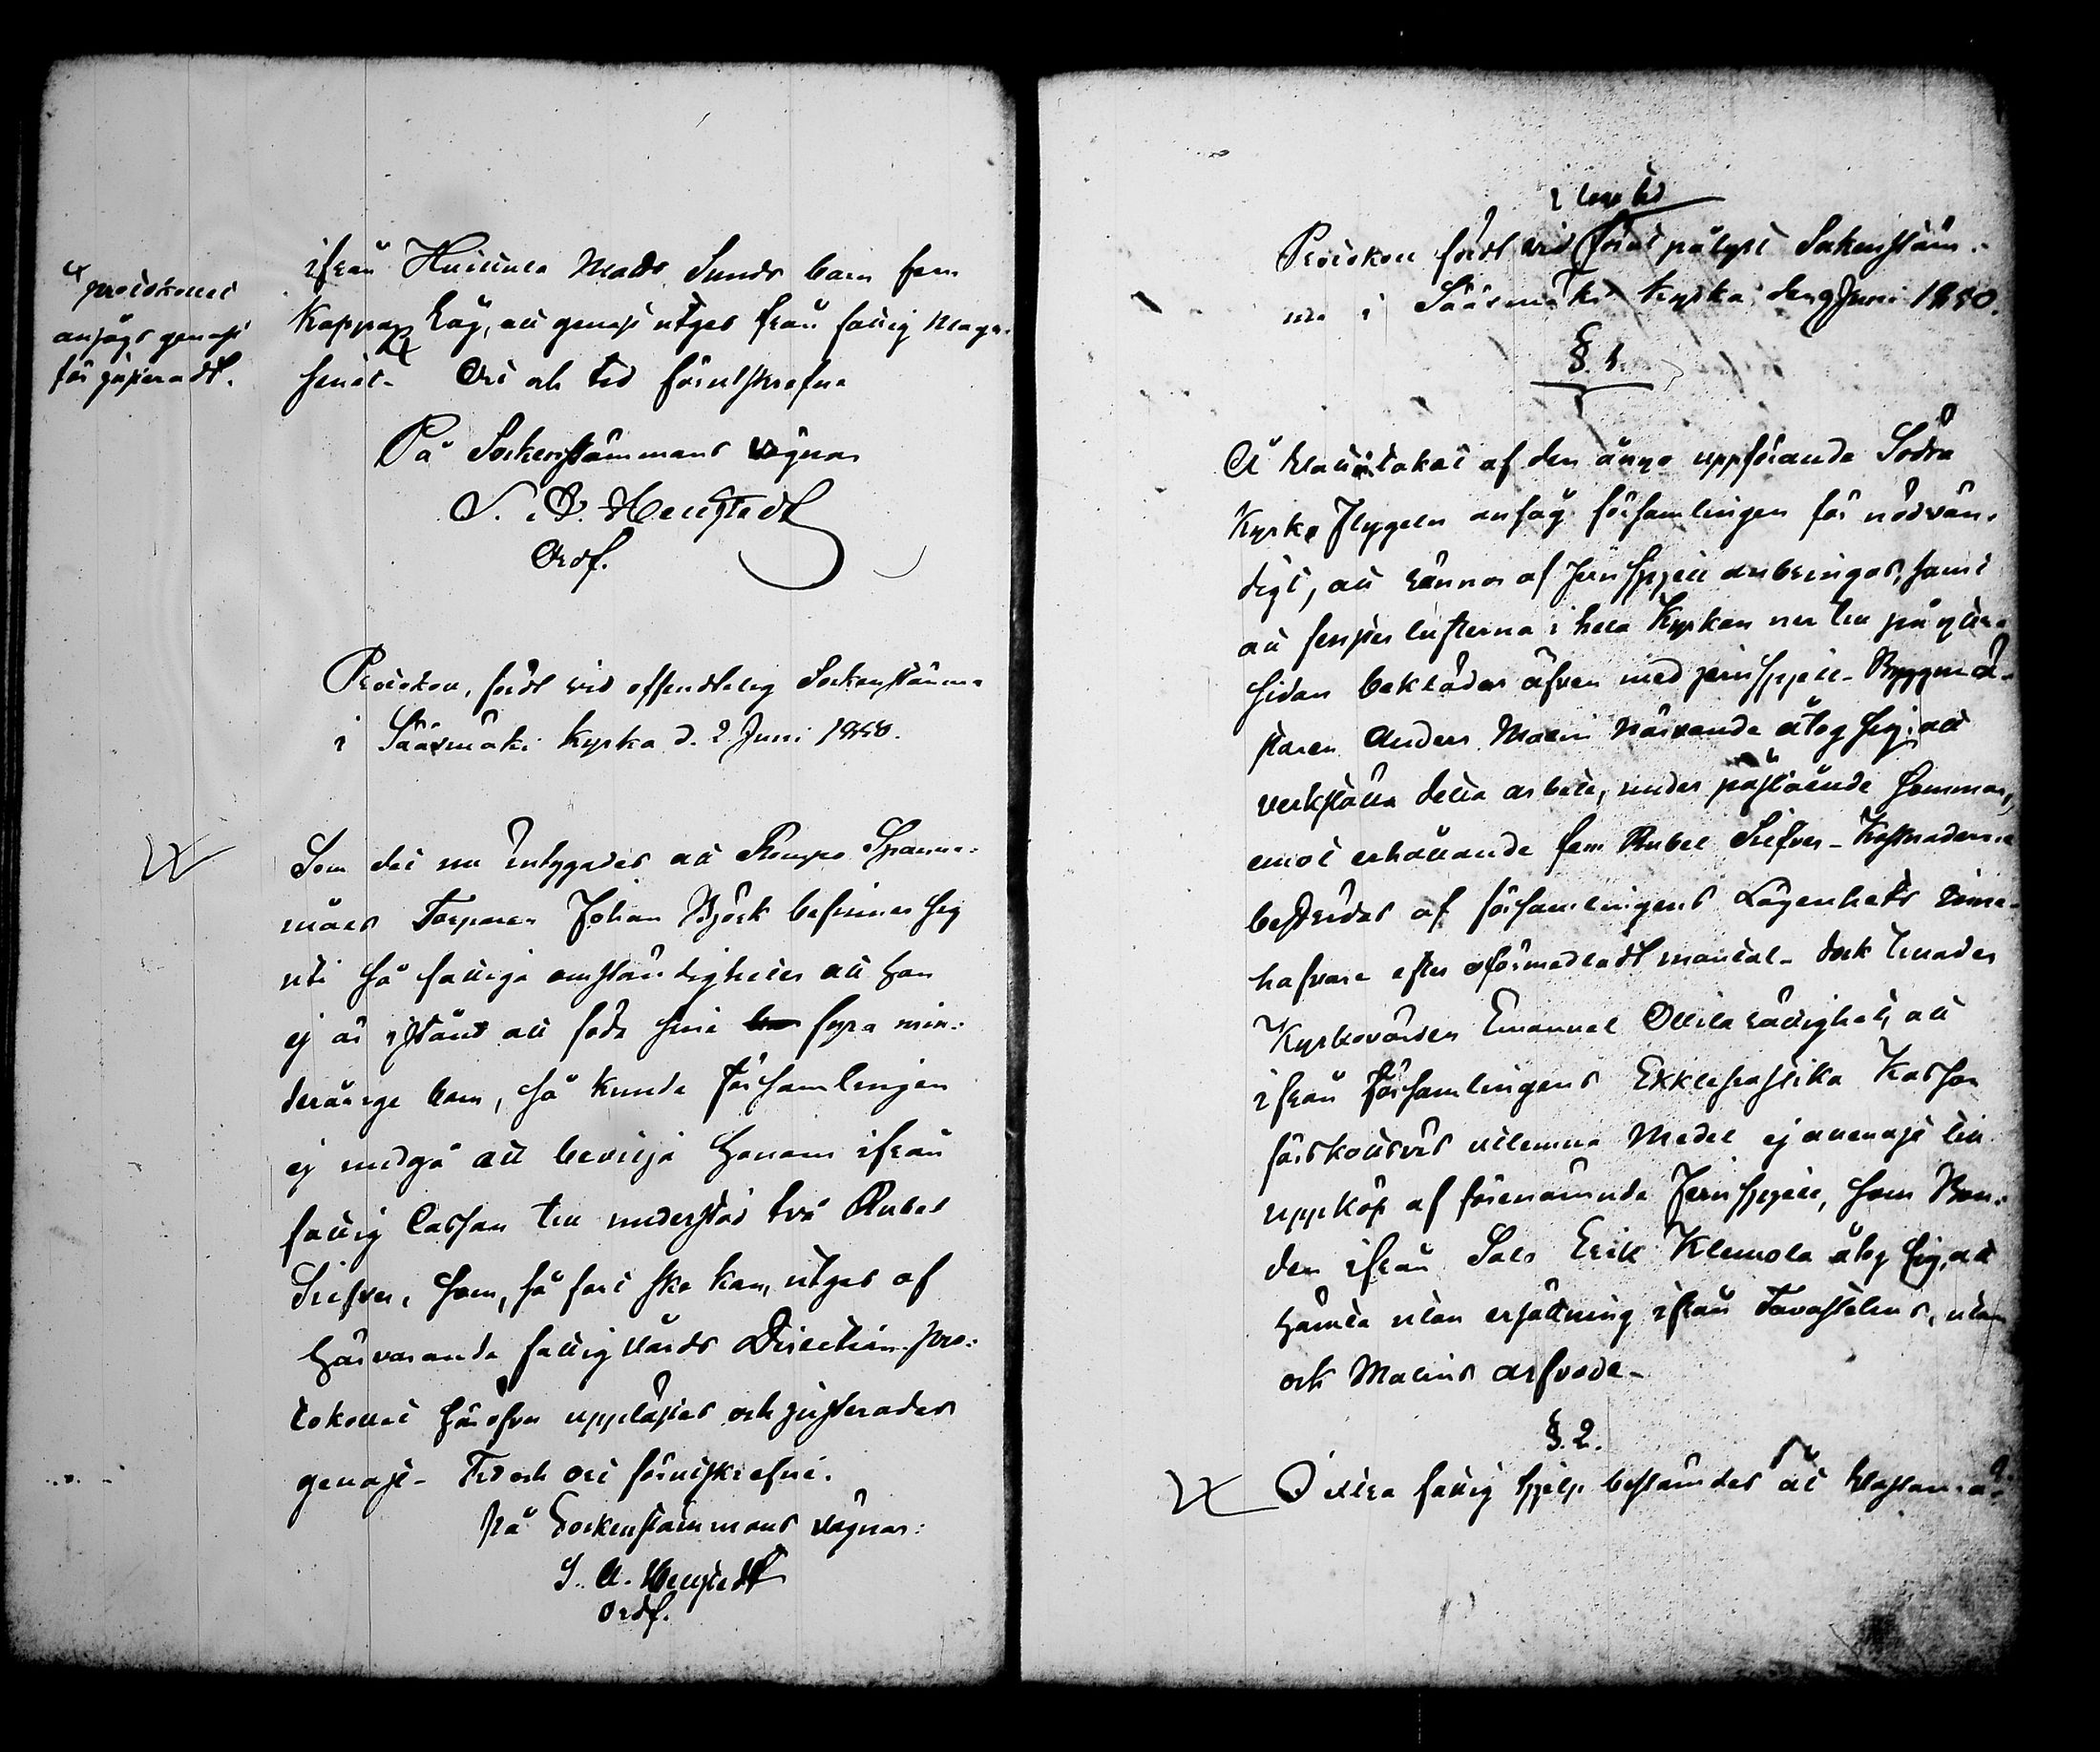 ifrån Huittula Matts Sunds barn fem
Kappar Råg, att genast utges från fattig Maga-
sinet. Ort och tid förutskrefne
På Sockenstämmans vägnar
S. A. Hellstedt
Ordf.
protokollet
ansågs genast
för justeradt.
Protokoll, fördt vid offendtelig Sockenstämma
i Sääxmäki Kyrka d. 2 Juni 1850.
Som det nu intygades att Rompo Spannu-
mäes Torparen Johan Björk befinner sig
uti så fattiga omständigheter att han
ej är istånd att föda sine fyra min-
deråriga barn, så kunde Församlingen
ej undgå att bevilja honom ifrån
fattig Cassan till understöd två Rubel
Silfver, som, så fort ske kan, utges af
härvarande fattigvårds Direction. Pro-
tokollet härofver upplästes och justerades
genast. Tid och ort förutskrefne.
På Sockenstämmans vägnar:
S. A. Hellstedt
Ordf.
i laga tid
Protokoll fördt vid förut pålyst Sockenstäm-
ma i Sääxmäki Kyrka den 9 Juni 1850.
§. 1.
Å taket af den ännu uppförande Södra
Kyrko flygeln ansåg församlingen för nödvän-
digt, att rännor af Jernspjell anbringas, samt
att fenster lufterna i hela Kyrkan ner till på yttre
sidan beklädas äfven med jernspjell. Byggmä-
staren Anders Malin närvande åtog sig, att
verkställa detta arbete, under påstående sommar,
emot erhållande fem Rubel Silfver. Kostnaderne
bestridas af församlingens Lägenhets inne-
hafvare efter oförmedladt mantal. Dock lemnades
Kyrkovärden Emanuel Ollila rättighet, att
ifrån Församlingens Ekklesiastika Kassa
förskottsvis utlemna Medel ej allenast till
uppköp af förenämnde Jernspjell, som Bon-
den ifrån Sals Erik Klemola åtog sig, att
hämta utan ersättning ifrån Tavastehus, utan
ock Malins arfvode.
§. 2.
Till extra fattig hjelp bestämdes åt